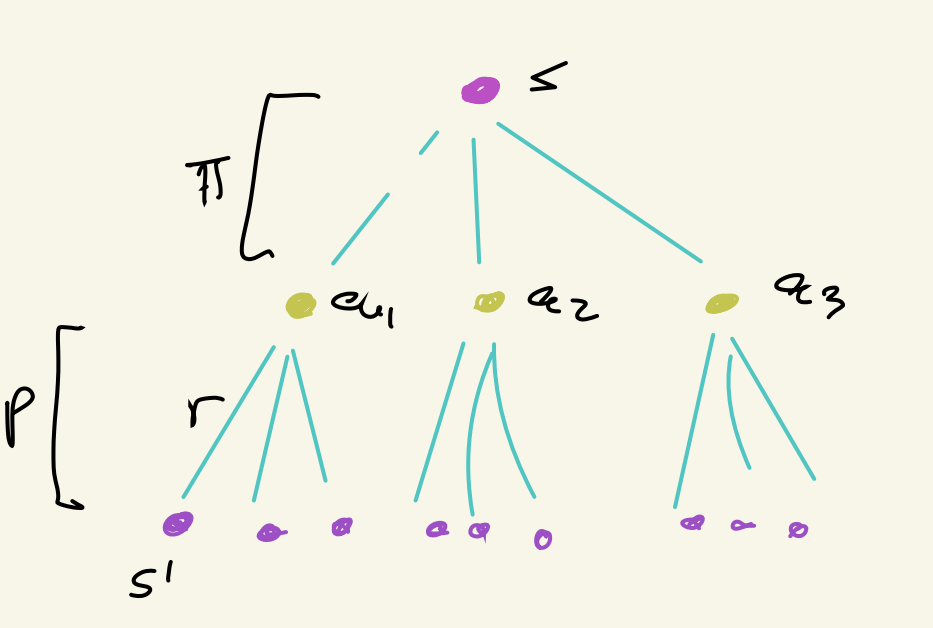 s
π
a1
a2
a3
p
r
s'